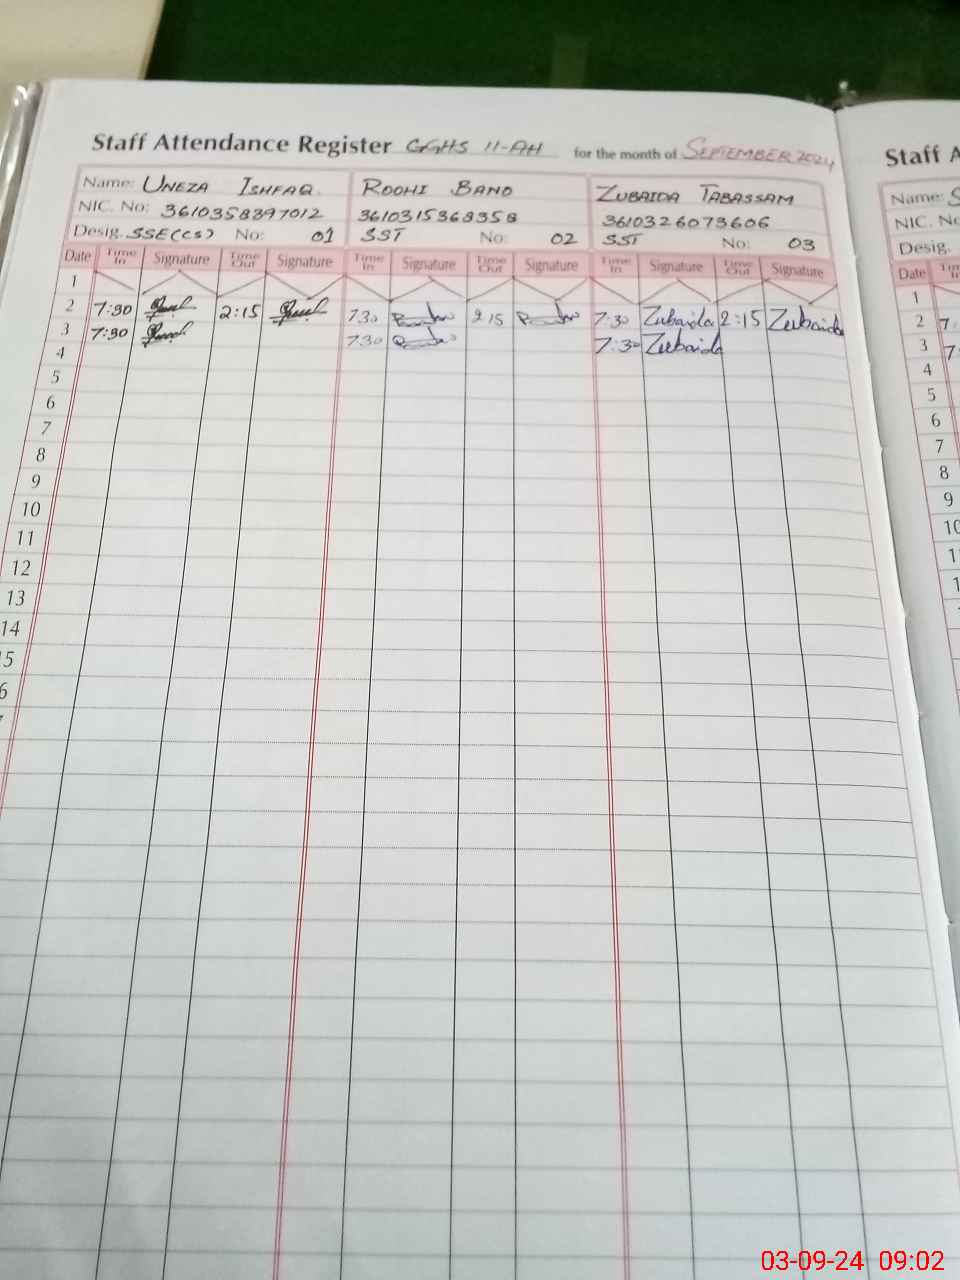 Staff Attendance Register GGHS 11-AH for the month of SEPTEMBER 2024
Name: UNEZA ISHFAQ ROOHI BANO ZUBAIDA TABASSAM
NIC. No: 3610358397012 3610315368358 3610326073606
Desig. SSE(CS) No: 01 SST No: 02 SST No: 03
Date Time In Signature Time Out Signature Time In Signature Time Out Signature Time In Signature Time Out Signature
1
2 7:30 2:15 7 30 2 15 7:30 Zubaida 2:15 Zubaida
3 7:30 7 30 7:30 Zubaida
4
5
6
7
8
9
10
11
12
13
14
15
6
Staff A
Name: S
NIC. No
Desig.
Date Time In
1
2 7
3 7
4
5
6
7
8
9
10
03-09-24 09:02